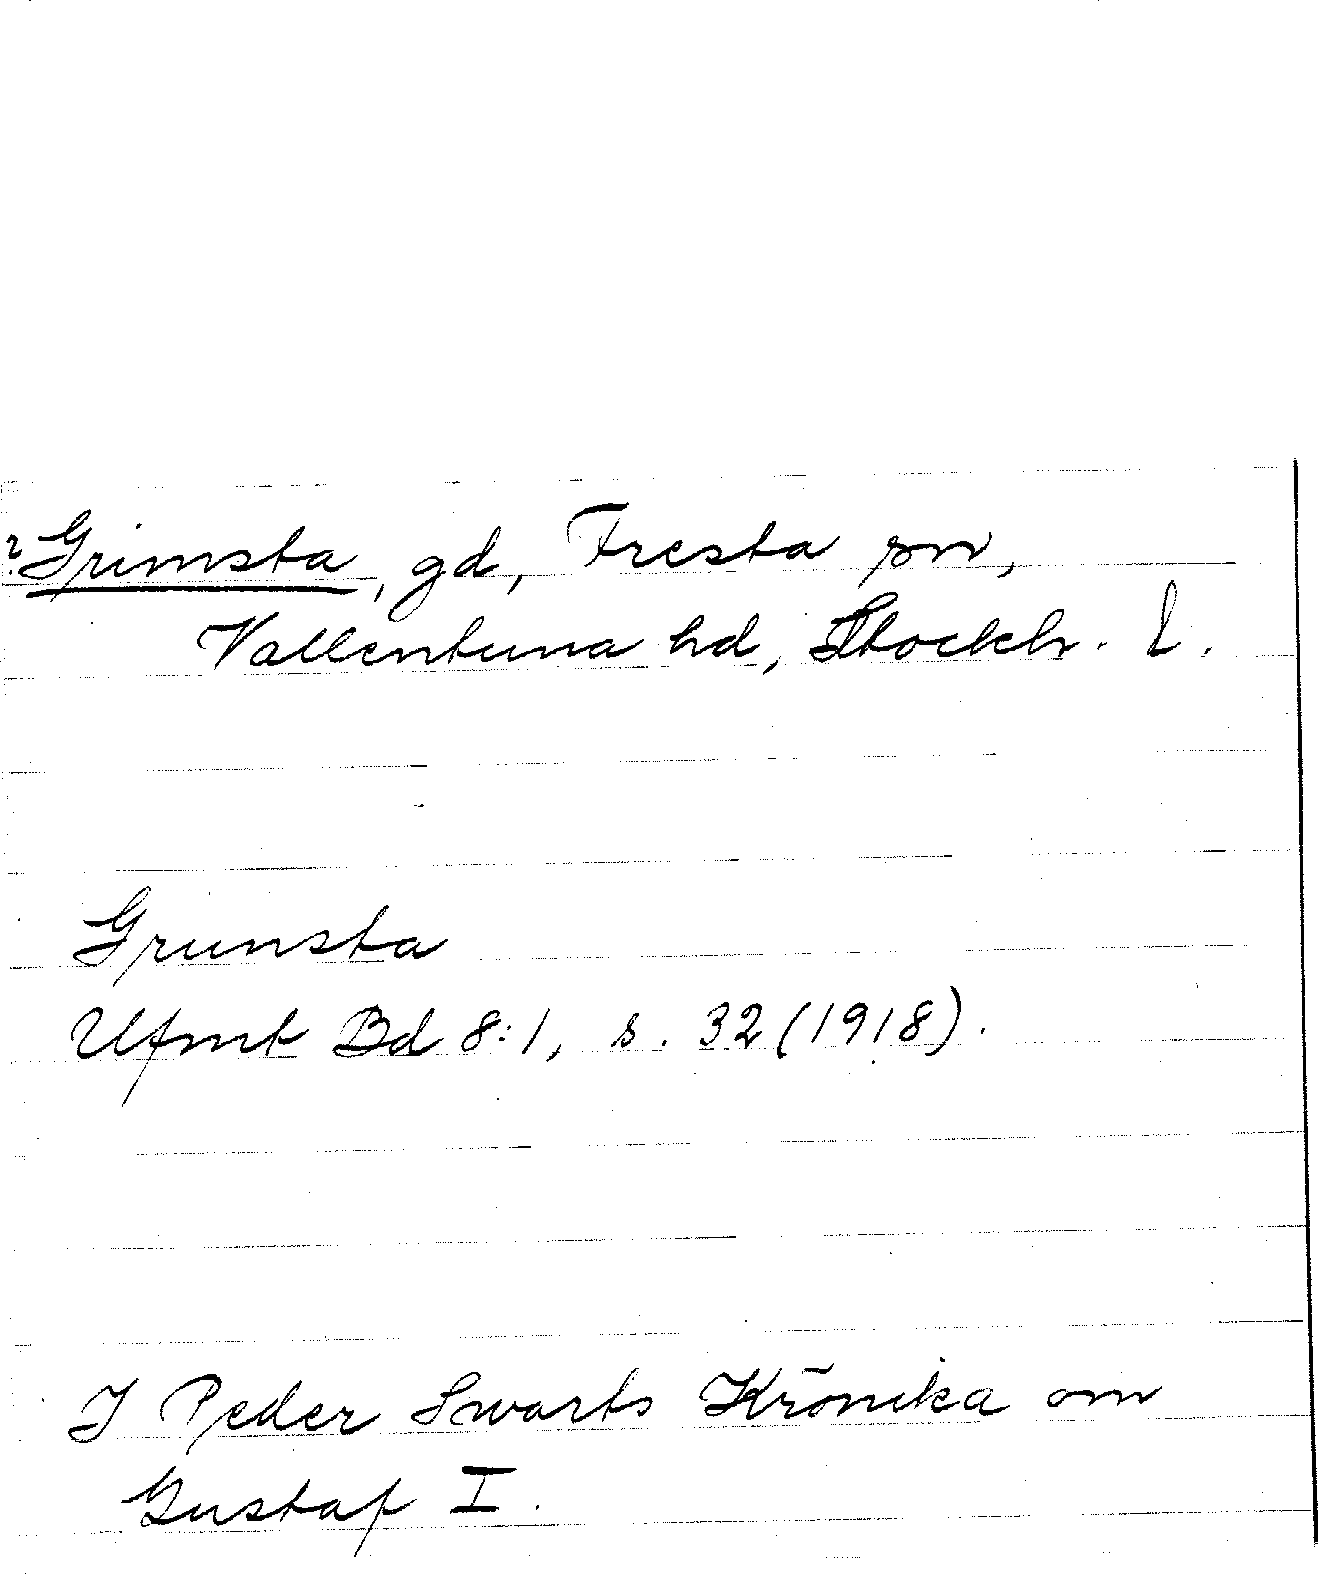 ? Grimsta, gd, Fresta sn,
Vallentuna hd, Stockh. l.
Grunsta
Ufmt Bd 8:1, s. 32 (1918).
I Peder Swarts Krönika om
Gustaf I.